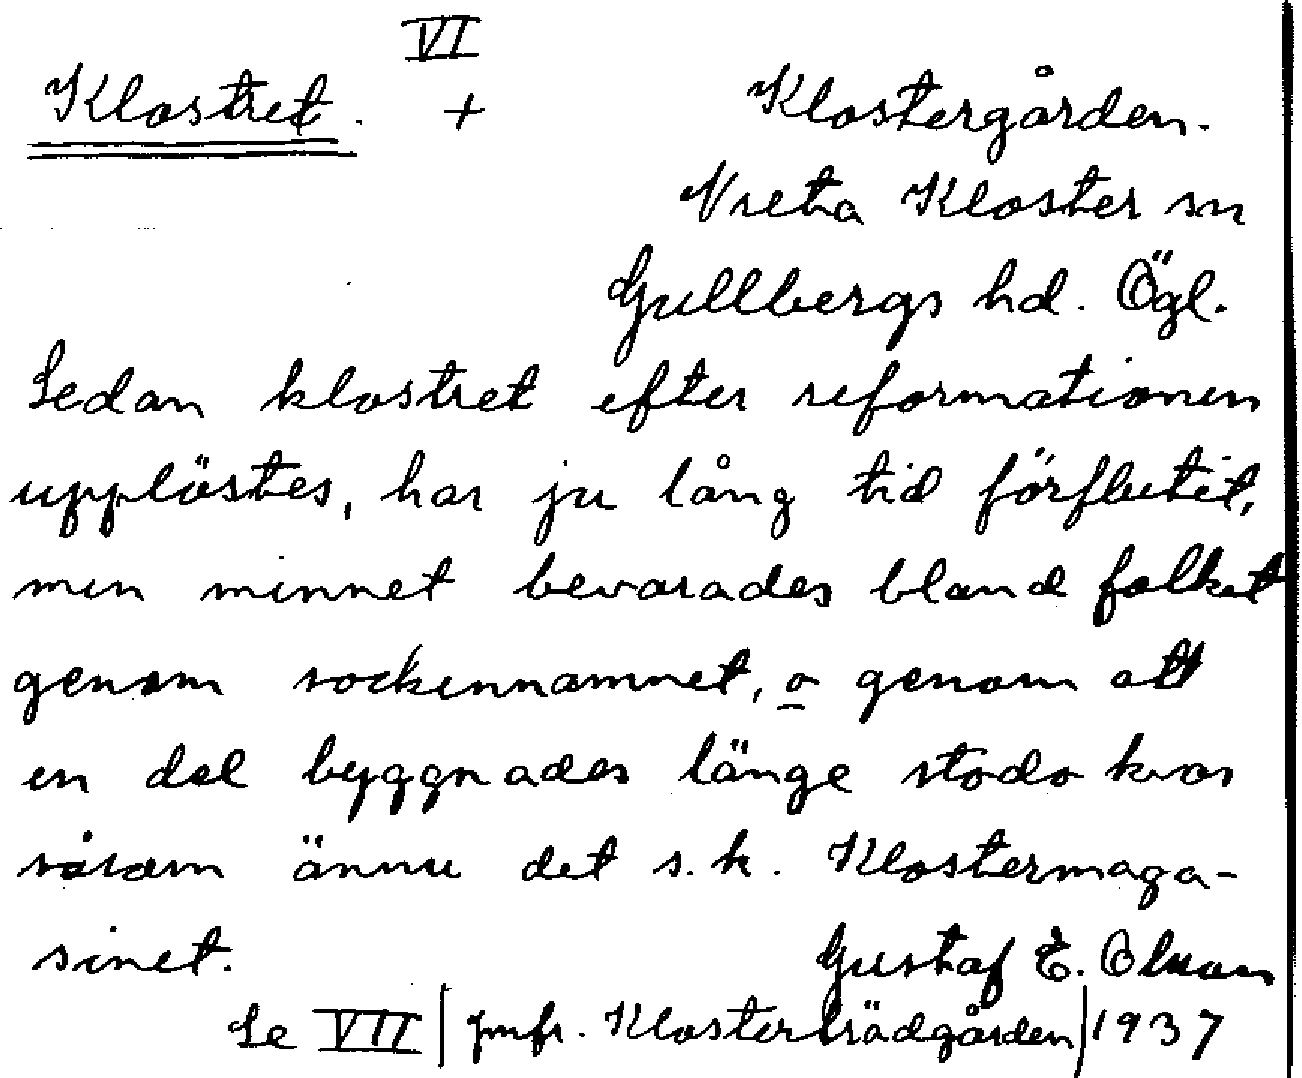 VI
Klostret. + Klostergården.
Vreta Kloster sn
Gullbergs hd. Ögl.
Sedan klostret efter reformationen
upplöstes, har ju lång tid förflutit,
men minnet bevarades bland folket
genom sockennamnet, o genom att
en del byggnader länge stodo kvar
såsom ännu det s.k. Klostermaga-
sinet.
Gustaf E. Olsson
Se VII | jmfr. Klosterträdgården | 1937